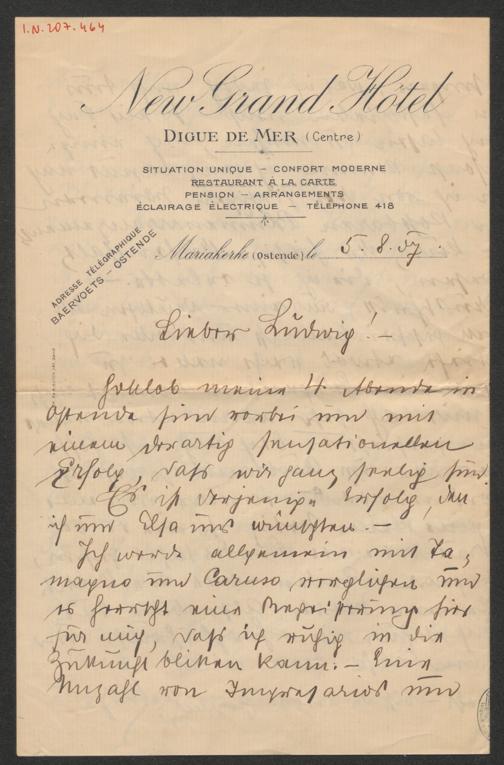 I.N. 207.464
New Grand Hôtel
DIGUE DE MER (Centre)
SITUATION UNIQUE – CONFORT MODERNE
RESTAURANT À LA CARTE
PENSION – ARRANGEMENTS
ÉCLAIRAGE ÉLECTRIQUE – TÉLÉPHONE 418
ADRESSE TÉLÉGRAPHIQUE
BAERVOETS – OSTENDE
Mariakerke (Ostende) le 5. 8. 07.
Lieber Ludwig! –
Gottlob meine 4 Abende in
Ostende sind vorbei und mit
einem derartig sensationellen
Erfolg, dass wir ganz seelig sind.
Es ist derjenige Erfolg, den
ich und Elsa uns wünschten. –
Ich werde allgemein mit Ta-
magno und Caruso verglichen und
es herrscht eine Begeisterung hier
für mich, dass ich ruhig in die
Zukunft bliken kann. – Eine
Anzahl von Impresarios und